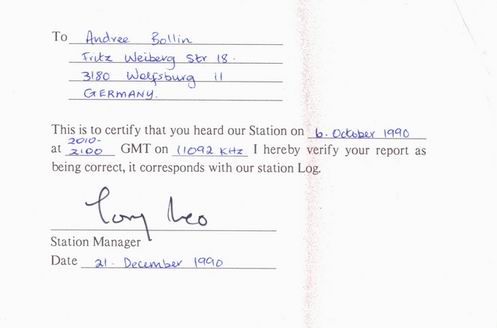 To Andree Bollin
Fritz Weiberg Str 18.
3180 Wolfsburg 11
GERMANY.
This is to certify that you heard our Station on 6. October 1990
at 2010-2100 GMT on 11092 KHz I hereby verify your report as
being correct, it corresponds with our station Log.
Tony Leo
Station Manager
Date 21. December 1990